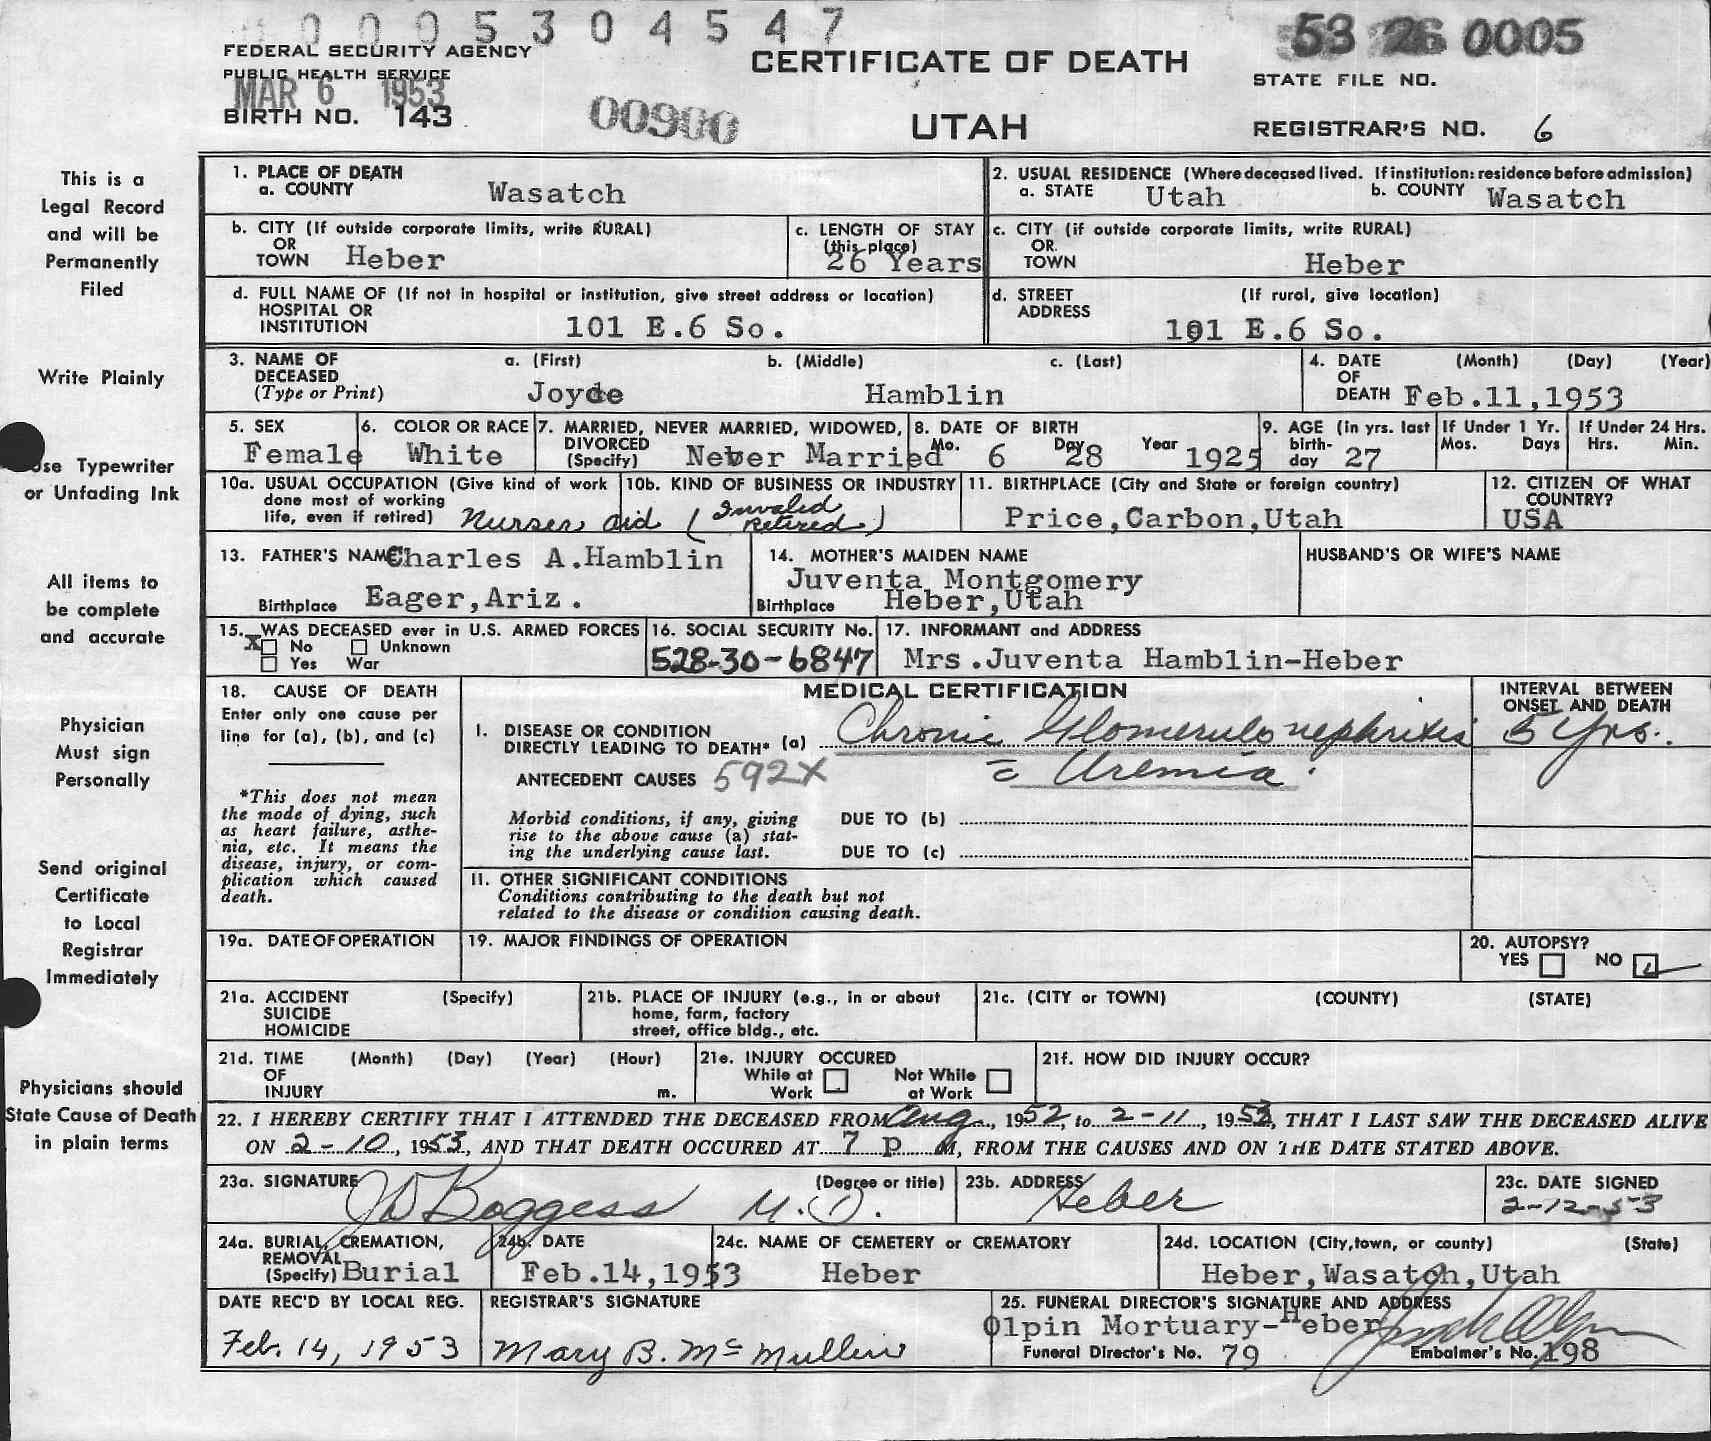 0005304547
53 26 0005
FEDERAL SECURITY AGENCY
CERTIFICATE OF DEATH
PUBLIC HEALTH SERVICE
STATE FILE NO.
MAR 6 1953
BIRTH NO. 143
00900
UTAH
REGISTRAR'S NO. 6
This is a
Legal Record
and will be
Permanently
Filed
Write Plainly
Use Typewriter
or Unfading Ink
All items to
be complete
and accurate
Physician
Must sign
Personally
Send original
Certificate
to Local
Registrar
Immediately
Physicians should
State Cause of Death
in plain terms
1. PLACE OF DEATH
a. COUNTY Wasatch
2. USUAL RESIDENCE (Where deceased lived. If institution: residence before admission)
a. STATE Utah b. COUNTY Wasatch
b. CITY (If outside corporate limits, write RURAL)
OR
TOWN Heber
c. LENGTH OF STAY
(this place)
26 Years
c. CITY (if outside corporate limits, write RURAL)
OR
TOWN Heber
d. FULL NAME OF (If not in hospital or institution, give street address or location)
HOSPITAL OR
INSTITUTION 101 E.6 So.
d. STREET (If rural, give location)
ADDRESS
101 E.6 So.
3. NAME OF a. (First) b. (Middle) c. (Last)
DECEASED
(Type or Print) Joyce Hamblin
4. DATE (Month) (Day) (Year)
OF
DEATH Feb.11,1953
5. SEX
Female
6. COLOR OR RACE
White
7. MARRIED, NEVER MARRIED, WIDOWED,
DIVORCED
(Specify) Never Married
8. DATE OF BIRTH
Mo. 6 Day 28 Year 1925
9. AGE (in yrs. last
birth-
day 27
If Under 1 Yr.
Mos. Days
If Under 24 Hrs.
Hrs. Min.
10a. USUAL OCCUPATION (Give kind of work
done most of working
life, even if retired) Nurses aid
10b. KIND OF BUSINESS OR INDUSTRY
(Invalid
Retired)
11. BIRTHPLACE (City and State or foreign country)
Price,Carbon,Utah
12. CITIZEN OF WHAT
COUNTRY?
USA
13. FATHER'S NAME Charles A.Hamblin
Birthplace Eager,Ariz.
14. MOTHER'S MAIDEN NAME
Juventa Montgomery
Birthplace Heber,Utah
HUSBAND'S OR WIFE'S NAME
15. WAS DECEASED ever in U.S. ARMED FORCES
X No Unknown
Yes War
16. SOCIAL SECURITY No.
528-30-6847
17. INFORMANT and ADDRESS
Mrs.Juventa Hamblin-Heber
18. CAUSE OF DEATH
Enter only one cause per
line for (a), (b), and (c)
*This does not mean
the mode of dying, such
as heart failure, asthe-
nia, etc. It means the
disease, injury, or com-
plication which caused
death.
MEDICAL CERTIFICATION
INTERVAL BETWEEN
ONSET AND DEATH
I. DISEASE OR CONDITION
DIRECTLY LEADING TO DEATH* (a) Chronic Glomerulonephritis 5 Yrs.
ANTECEDENT CAUSES 592X c̄ Uremia.
Morbid conditions, if any, giving
rise to the above cause (a) stat-
ing the underlying cause last.
DUE TO (b)
DUE TO (c)
II. OTHER SIGNIFICANT CONDITIONS
Conditions contributing to the death but not
related to the disease or condition causing death.
19a. DATE OF OPERATION
19. MAJOR FINDINGS OF OPERATION
20. AUTOPSY?
YES NO
21a. ACCIDENT (Specify)
SUICIDE
HOMICIDE
21b. PLACE OF INJURY (e.g., in or about
home, farm, factory
street, office bldg., etc.
21c. (CITY or TOWN) (COUNTY) (STATE)
21d. TIME (Month) (Day) (Year) (Hour)
OF
INJURY m.
21e. INJURY OCCURED
While at Work
Not While at Work
21f. HOW DID INJURY OCCUR?
22. I HEREBY CERTIFY THAT I ATTENDED THE DECEASED FROM Aug., 1952, to 2-11, 1953, THAT I LAST SAW THE DECEASED ALIVE
ON 2-10, 1953, AND THAT DEATH OCCURED AT 7 P. M, FROM THE CAUSES AND ON THE DATE STATED ABOVE.
23a. SIGNATURE (Degree or title)
JD Boggess M.D.
23b. ADDRESS
Heber
23c. DATE SIGNED
2-12-53
24a. BURIAL, CREMATION,
REMOVAL
(Specify) Burial
24b. DATE
Feb.14,1953
24c. NAME OF CEMETERY or CREMATORY
Heber
24d. LOCATION (City,town, or county) (State)
Heber,Wasatch,Utah
DATE REC'D BY LOCAL REG.
Feb. 14, 1953
REGISTRAR'S SIGNATURE
Mary B. McMullin
25. FUNERAL DIRECTOR'S SIGNATURE AND ADDRESS
Olpin Mortuary-Heber
Funeral Director's No. 79 Embalmer's No. 198